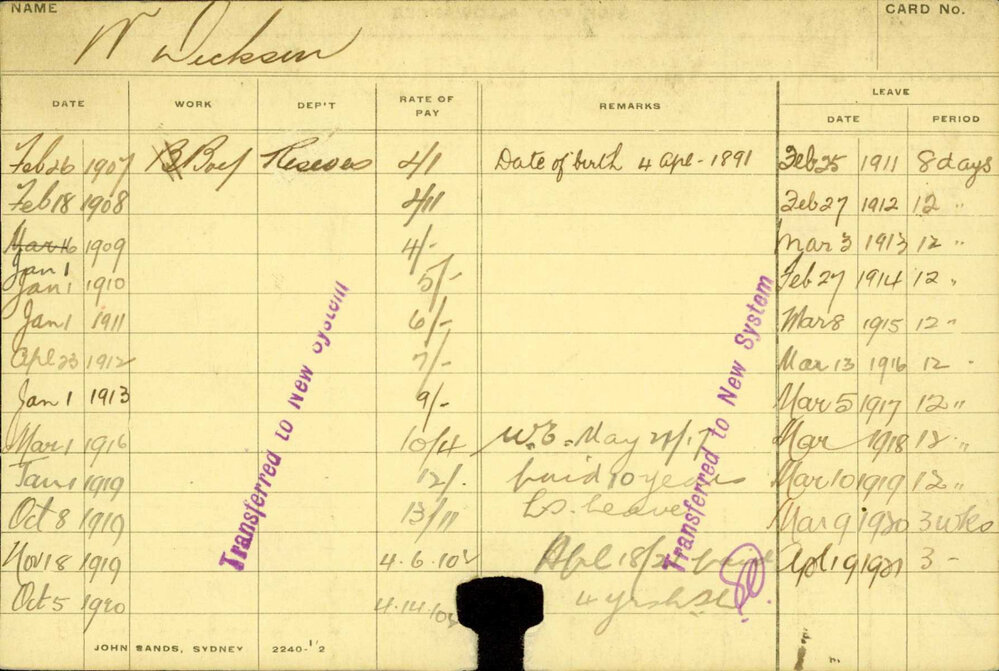 NAME
CARD No.
W Dickson
DATE WORK DEP'T RATE OF PAY REMARKS LEAVE
DATE PERIOD
Feb 26 1907 Boy 2/1 Date of birth 4 Apl - 1891 Feb 25 1911 8 days
Feb 18 1908 2/11 Feb 27 1912 12 "
Mar 16 1909 4/- Mar 3 1913 12 "
Jan 1
Jan 1 1910 5/- Feb 27 1914 12 "
Jan 1 1911 6/- Mar 8 1915 12 "
Apl 23 1912 7/- Mar 13 1916 12 "
Jan 1 1913 9/- Mar 5 1917 12 "
Mar 1 1916 10/4 W.E. May 1917 Mar 1918 12 "
Jan 1 1919 12/- paid 10 years Mar 10 1919 12 "
Oct 8 1919 13/11 L.S. Leave Mar 9 1920 3 wks
Nov 18 1919 4.6.10½ Apl 18/21 paid Apl 19 1921 3 -
Oct 5 1920 4.14.10½ 4 yrs
Transferred to New System
Transferred to New System
JOHN SANDS, SYDNEY 2240-1/2